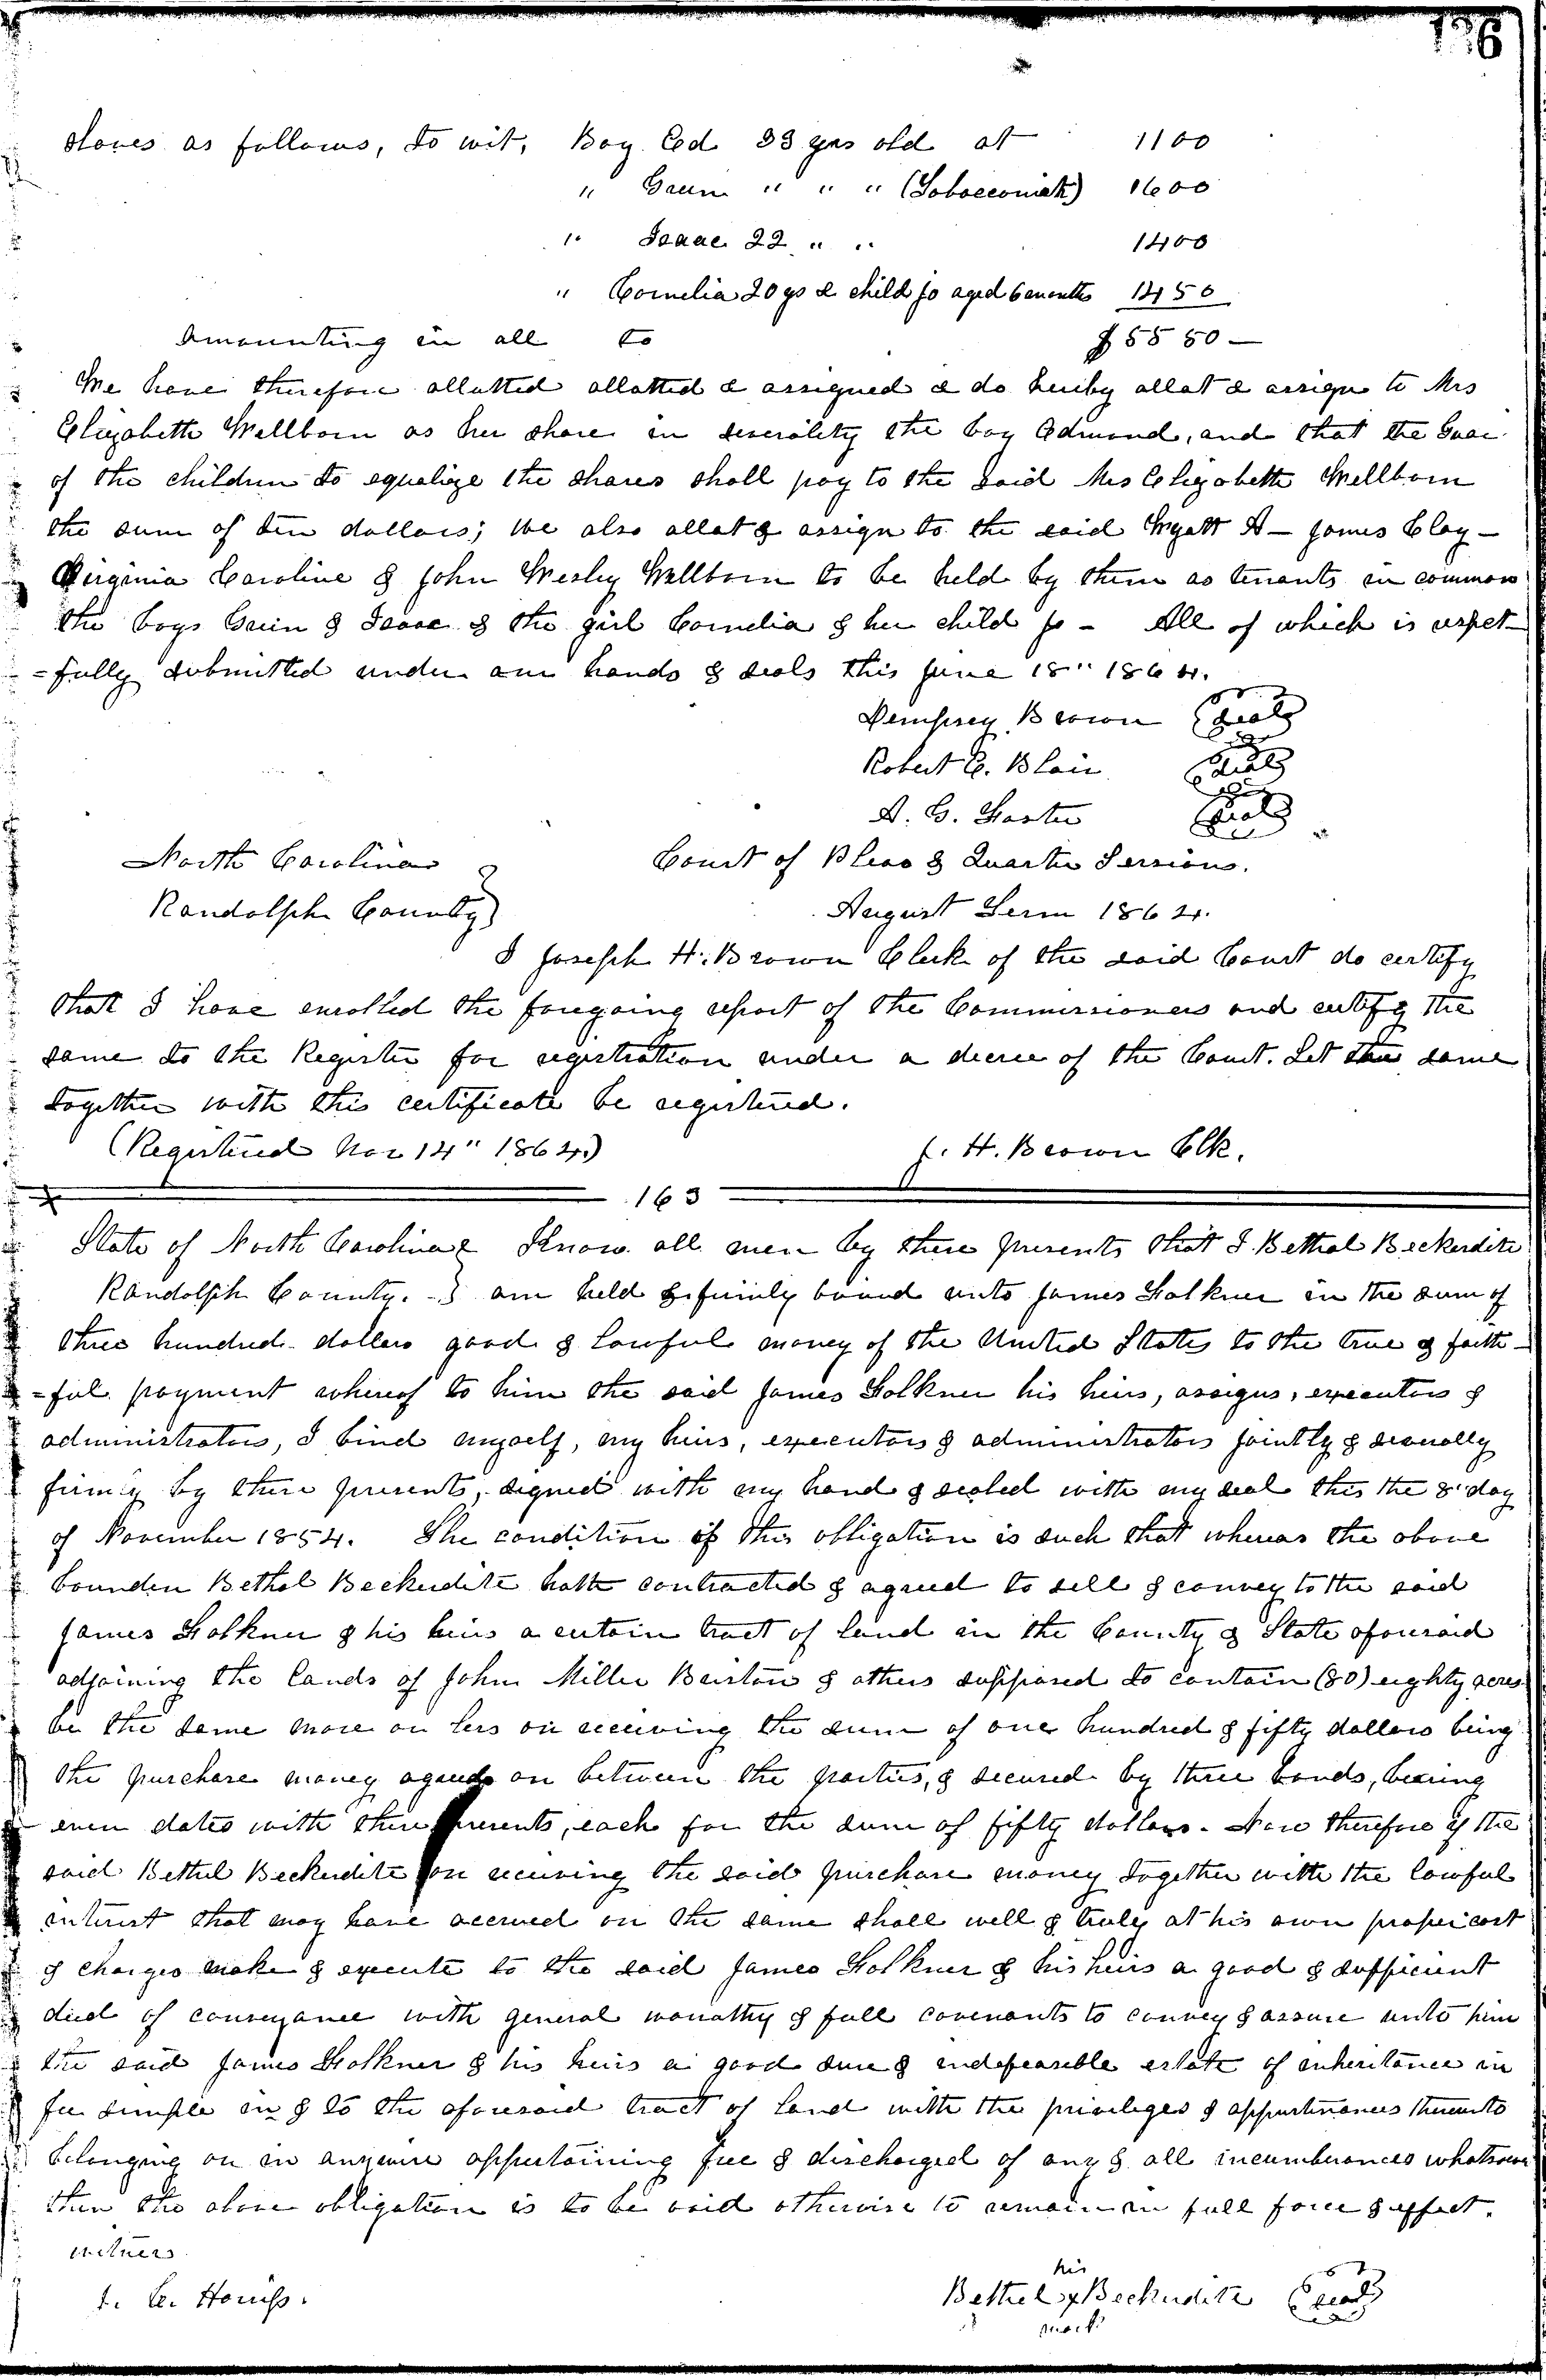 136
slaves as follows, to wit, Boy Ed 33 yrs old at 1100
" Green " " " (Tobacconist) 1600
" Isaac 22 " " 1400
" Cornelia 20 ys & child Jo aged 6 months 1450
Amounting in all to $5550 —
We have therefore allotted allotted & assigned & do hereby allot & assign to Mrs
Elizabeth Wellborn as her share in severality the boy Edmond, and that the Guar.
of the children to equalize the shares shall pay to the said Mrs Elizabeth Wellborn
the sum of ten dollars; We also allot & assign to the said Wyatt A — James Clay —
Virginia Caroline & John Wesley Wellborn to be held by them as tenants in common
the boys Green & Isaac & the girl Cornelia & her child Jo – All of which is respet-
=fully submitted under our hands & seals this June 18" 1864.
Dempsey Brown (seal)
Robert C. Blair (seal)
A. G. Foster (seal)
North Carolina } Court of Pleas & Quarter Sessions.
Randolph County } August Term 1864.
I Joseph H. Brown Clerk of the said Court do certify
that I have enrolled the foregoing report of the Commissioners and certify the
same to the Register for registration under a decree of the Court. Let the same
together with this certificate be registered.
(Registered Nov 14" 1864) J. H. Brown Clk.
163
State of North Carolina } Know all men by these presents that I Bethal Beckerdite
Randolph County. } am held & firmly bound unto James Falkner in the sum of
three hundred dollars good & lawful money of the United States to the true & faith-
=ful payment whereof to him the said James Falkner his heirs, assigns, executors &
administrators, I bind myself, my heirs, executors & administrators jointly & severally
firmly by these presents, signed with my hand & sealed with my seal this the 8' day
of November 1854. The condition of this obligation is such that whereas the above
bounden Bethel Beckerdite hath contracted & agreed to sell & convey to the said
James Falkner & his heirs a certain tract of land in the County & State aforesaid
adjoining the lands of John Miller Burton & others supposed to contain (80) eighty acres
be the same more or less on receiving the sum of one hundred & fifty dollars being
the purchase money agreed on between the parties, & secured by three bonds, bearing
even dates with these presents, each for the sum of fifty dollars. Now therefore if the
said Bethel Beckerdite on receiving the said purchase money together with the lawful
interest that may have accrued on the same shall well & truly at his own proper cost
& charges make & execute to the said James Falkner & his heirs a good & sufficient
deed of conveyance with general warrathy & full covenants to convey & assure unto him
the said James Falkner & his heirs a good sure & indefeasible estate of inheritance in
fee simple in & to the aforesaid tract of land with the privileges & appurtenances thereunto
belonging or in anywise appertaining free & discharged of any & all incumberances whatsoever
then the above obligation is to be void otherwise to remain in full force & effect.
witness
his
Bethel x Beckerdite (seal)
mark